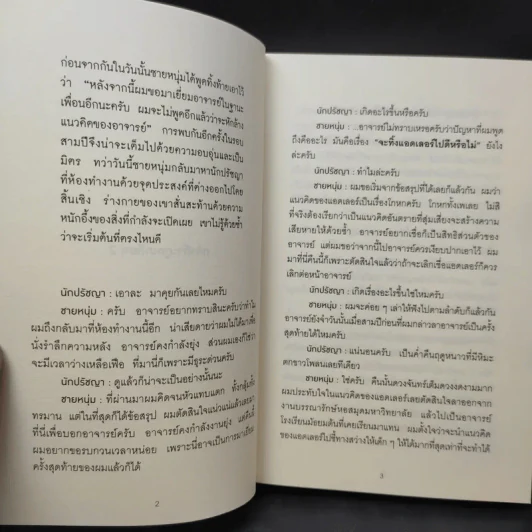 ก่อนจากกันในวันนั้นชายหนุ่มได้พูดทิ้งท้ายเอาไว้
ว่า “หลังจากนี้ผมขอมาเยี่ยมอาจารย์ในฐานะ
เพื่อนอีกนะครับ ผมจะไม่พูดอีกแล้วว่าจะหักล้าง
แนวคิดของอาจารย์” การพบกันอีกครั้งในรอบ
สามปีจึงน่าจะเต็มไปด้วยความอบอุ่นและเป็น
มิตร ทว่าวันนี้ชายหนุ่มกลับมาหานักปรัชญา
ที่ห้องทำงานด้วยจุดประสงค์ที่ต่างออกไปโดย
สิ้นเชิง ร่างกายของเขาสั่นสะท้านด้วยความ
หนักอึ้งของสิ่งที่กำลังจะเปิดเผย เขาไม่รู้ด้วยซ้ำ
ว่าจะเริ่มต้นที่ตรงไหนดี
นักปรัชญา : เอาละ มาคุยกันเลยไหมครับ
ชายหนุ่ม : ครับ อาจารย์อยากทราบสินะครับว่าทำไม
ผมถึงกลับมาที่ห้องทำงานนี้อีก น่าเสียดายว่าผมไม่ได้มาเพื่อ
นั่งรำลึกความหลัง อาจารย์คงกำลังยุ่ง ส่วนผมเองก็ใช่ว่า
จะมีเวลาว่างเหลือเฟือ ที่มานี่ก็เพราะมีธุระด่วนครับ
นักปรัชญา : ดูแล้วก็น่าจะเป็นอย่างนั้นนะ
ชายหนุ่ม : ที่ผ่านมาผมคิดจนหัวแทบแตก ทั้งกลุ้มทั้ง
ทรมาน แต่ในที่สุดก็ได้ข้อสรุป ผมตัดสินใจแน่วแน่แล้วเลยมา
ที่นี่เพื่อบอกอาจารย์ครับ อาจารย์คงกำลังยุ่ง แต่คืนนี้
ผมอยากขอรบกวนเวลาหน่อย เพราะนี่อาจเป็นการมาเยือน
ครั้งสุดท้ายของผมแล้วก็ได้
2
นักปรัชญา : เกิดอะไรขึ้นหรือครับ
ชายหนุ่ม : ...อาจารย์ไม่ทราบเหรอครับว่าปัญหาที่ผมพูด
ถึงคืออะไร มันคือเรื่อง “จะทิ้งแอดเลอร์ไปดีหรือไม่” ยังไง
ล่ะครับ
นักปรัชญา : ทำไมล่ะครับ
ชายหนุ่ม : ผมขอเริ่มจากข้อสรุปที่ได้เลยก็แล้วกัน ผมว่า
แนวคิดของแอดเลอร์เป็นเรื่องโกหกครับ โกหกทั้งเพเลย ไม่สิ
ที่จริงต้องเรียกว่าเป็นแนวคิดอันตรายที่สุ่มเสี่ยงจะสร้างความ
เสียหายให้ด้วยซ้ำ อาจารย์อยากจะเชื่อก็เป็นสิทธิส่วนตัวของ
อาจารย์ แต่ผมขอว่าจากนี้ไปอาจารย์ควรเงียบปากเอาไว้ ผม
มาที่นี่คืนนี้ก็เพราะตัดสินใจแล้วว่าถ้าจะเลิกเชื่อแอดเลอร์ก็ควร
เลิกต่อหน้าอาจารย์
นักปรัชญา : เกิดเรื่องอะไรขึ้นใช่ไหมครับ
ชายหนุ่ม : ผมจะค่อย ๆ เล่าให้ฟังไปตามลำดับก็แล้วกัน
อาจารย์ยังจำวันนั้นเมื่อสามปีก่อนที่ผมกล่าวลาอาจารย์เป็นครั้ง
สุดท้ายได้ไหมครับ
นักปรัชญา : แน่นอนครับ เป็นค่ำคืนฤดูหนาวที่มีหิมะ
ตกขาวโพลนเลยทีเดียว
ชายหนุ่ม : ใช่ครับ คืนนั้นดวงจันทร์เต็มดวงงดงามมาก
ผมประทับใจในแนวคิดของแอดเลอร์เลยตัดสินใจลาออกจาก
งานบรรณารักษ์หอสมุดมหาวิทยาลัย แล้วไปเป็นอาจารย์
โรงเรียนมัธยมต้นที่เคยเรียนมาแทน ผมตั้งใจว่าจะนำแนวคิด
ของแอดเลอร์ไปชี้ทางสว่างให้เด็ก ๆ ให้ได้มากที่สุดเท่าที่จะทำได้
3